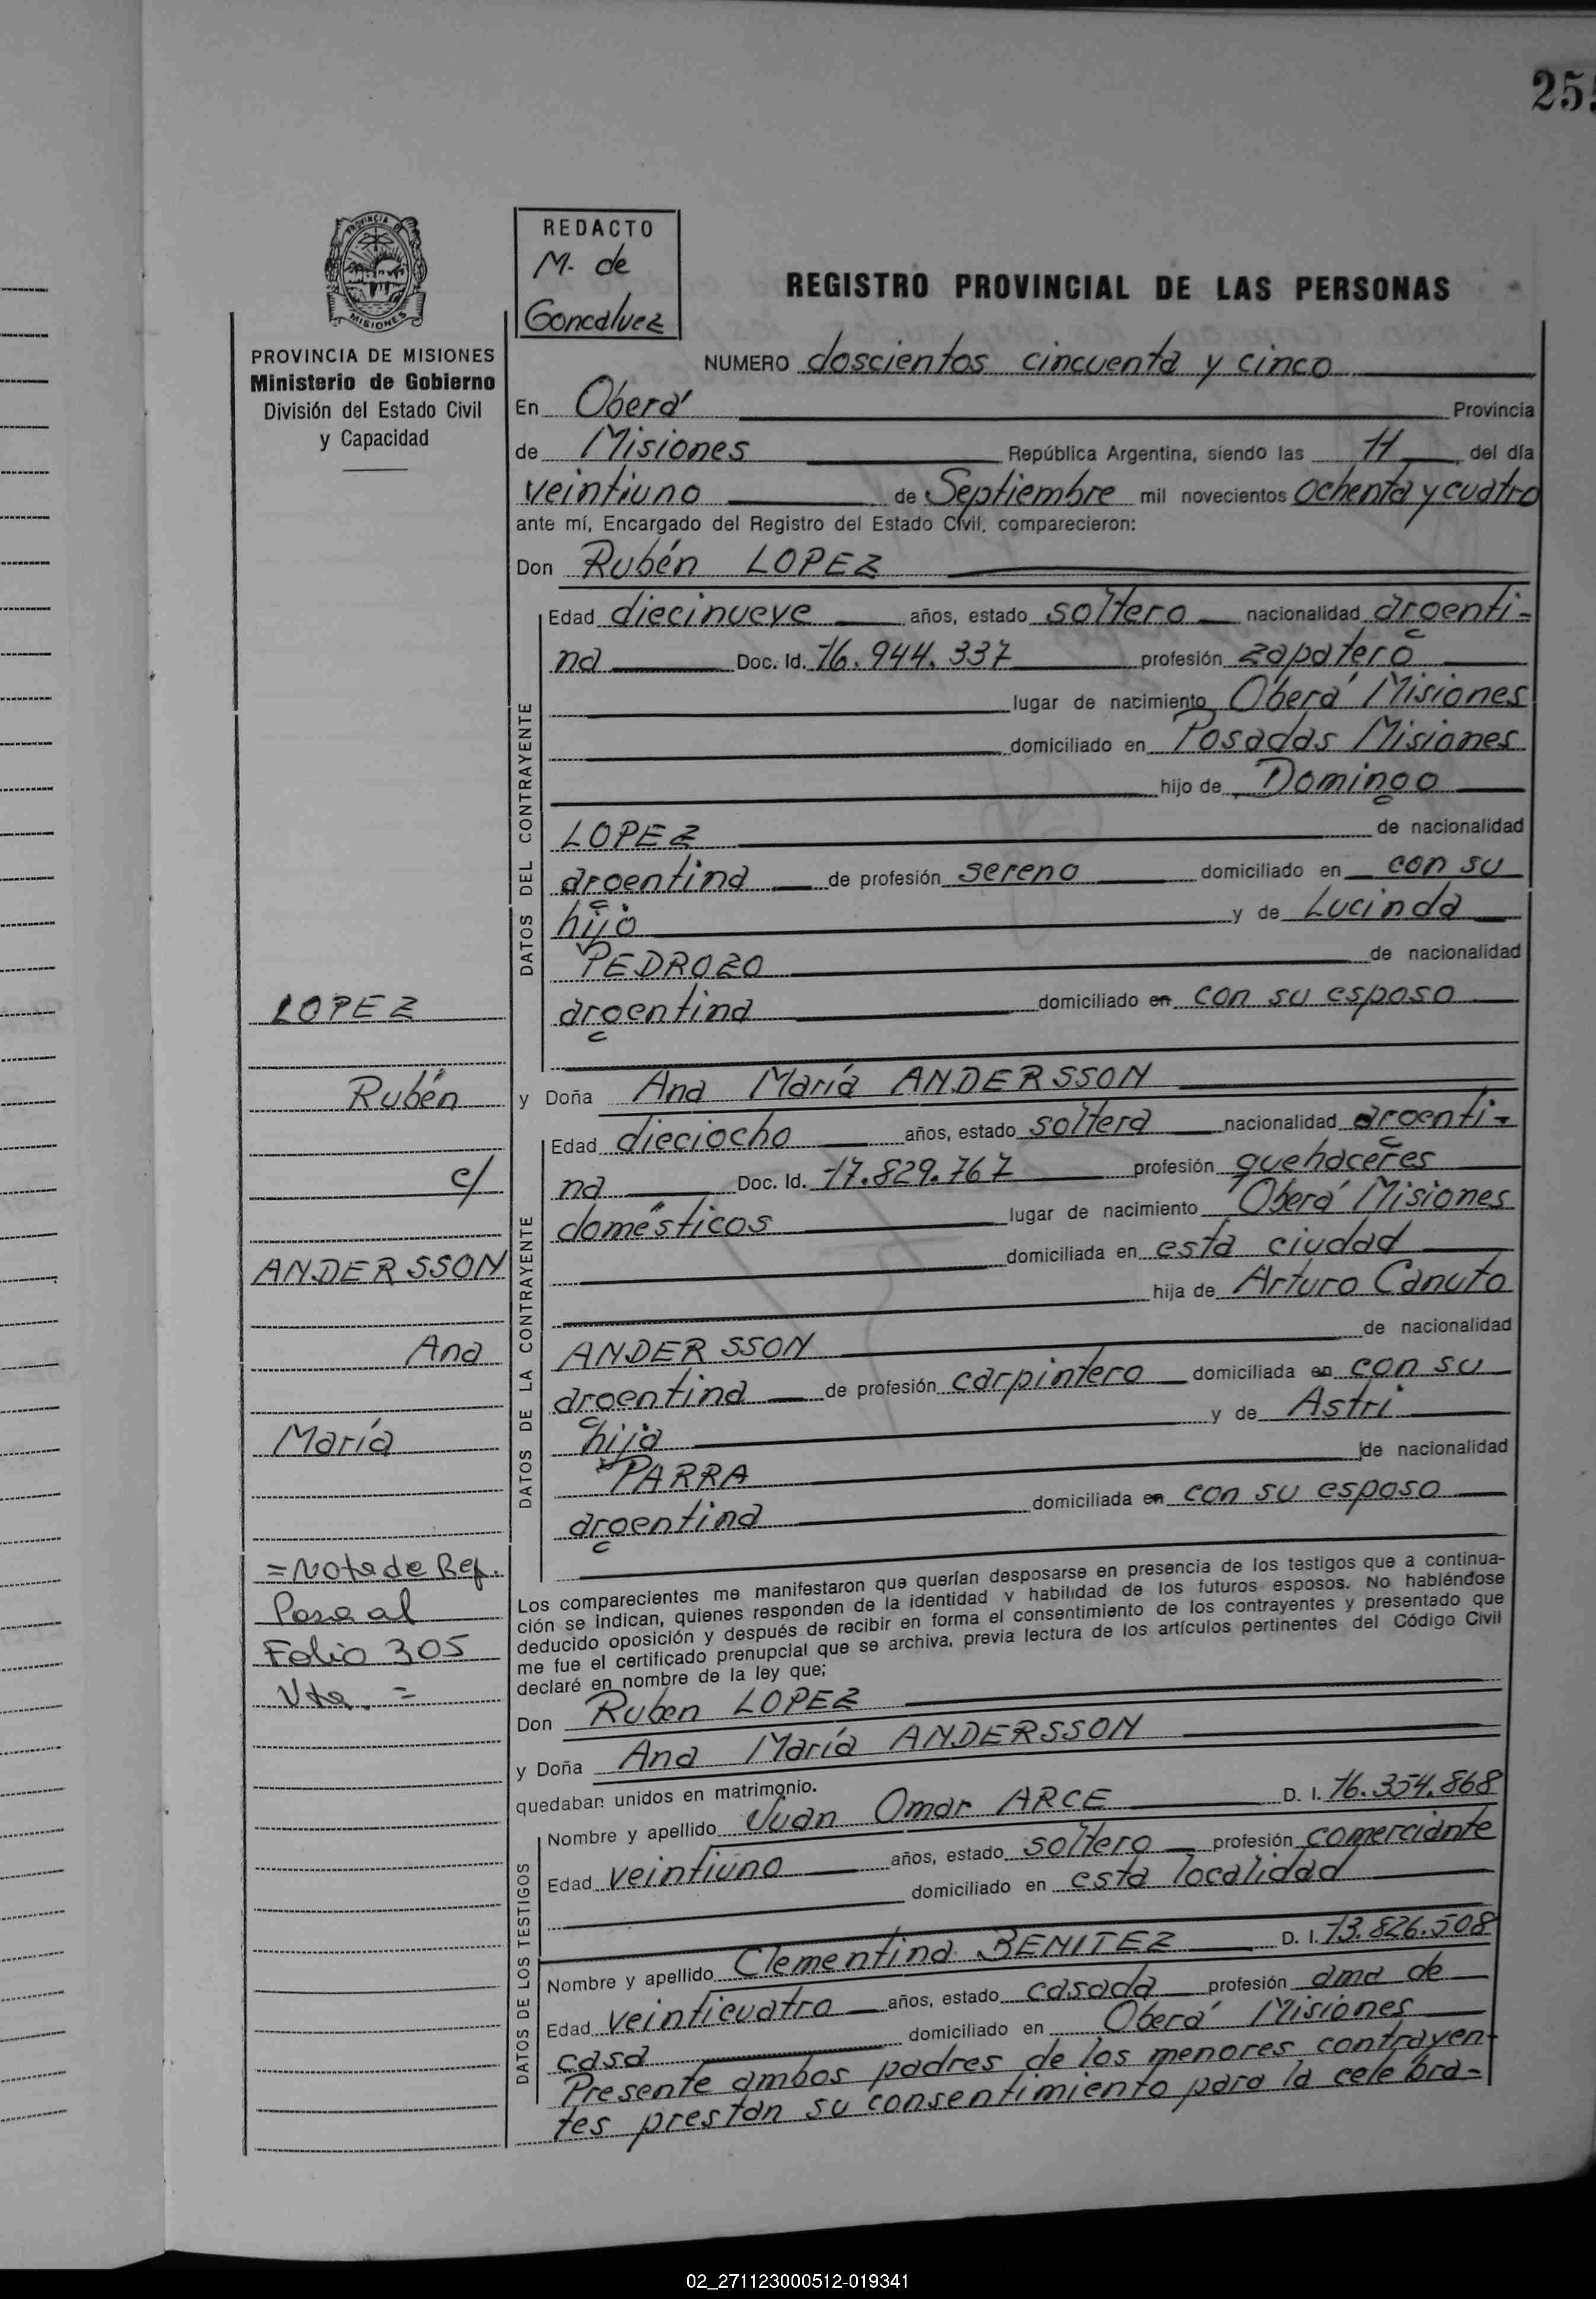 255
PROVINCIA DE
MISIONES
PROVINCIA DE MISIONES
Ministerio de Gobierno
División del Estado Civil
y Capacidad
REDACTO
M. de
Goncalvez
REGISTRO PROVINCIAL DE LAS PERSONAS
NUMERO doscientos cincuenta y cinco
En Oberá Provincia
de Misiones República Argentina, siendo las 11 del día
veintiuno de Septiembre mil novecientos ochenta y cuatro
ante mí, Encargado del Registro del Estado Civil, comparecieron:
Don Rubén LOPEZ
DATOS DEL CONTRAYENTE
Edad diecinueve años, estado soltero nacionalidad argenti-
na Doc. Id. 16.944.337 profesión zapatero
lugar de nacimiento Oberá Misiones
domiciliado en Posadas Misiones
hijo de Domingo
LOPEZ de nacionalidad
argentina de profesión sereno domiciliado en con su
hijo y de Lucinda
PEDROZO de nacionalidad
argentina domiciliado en con su esposo
y Doña Ana María ANDERSSON
DATOS DE LA CONTRAYENTE
Edad dieciocho años, estado soltera nacionalidad argenti-
na Doc. Id. 17.829.767 profesión quehaceres
domésticos lugar de nacimiento Oberá Misiones
domiciliada en esta ciudad
hija de Arturo Canuto
ANDERSSON de nacionalidad
argentina de profesión carpintero domiciliada en con su
hija y de Astri
PARRA de nacionalidad
argentina domiciliada en con su esposo
LOPEZ
Rubén
c/
ANDERSSON
Ana
María
=Nota de Ref.
Pasa al
Folio 305
Vta. =
Los comparecientes me manifestaron que querían desposarse en presencia de los testigos que a continua-
ción se indican, quienes responden de la identidad y habilidad de los futuros esposos. No habiéndose
deducido oposición y después de recibir en forma el consentimiento de los contrayentes y presentado que
me fue el certificado prenupcial que se archiva, previa lectura de los artículos pertinentes del Código Civil
declaré en nombre de la ley que;
Don Ruben LOPEZ
y Doña Ana María ANDERSSON
quedaban unidos en matrimonio.
DATOS DE LOS TESTIGOS
Nombre y apellido Juan Omar ARCE D. I. 16.354.868
Edad veintiuno años, estado soltero profesión comerciante
domiciliado en esta localidad
Nombre y apellido Clementina BENITEZ D. I. 13.826.508
Edad veinticuatro años, estado casada profesión ama de
casa domiciliado en Oberá Misiones
Presente ambos padres de los menores contrayen-
tes prestan su consentimiento para la celebra-
02_271123000512-019341